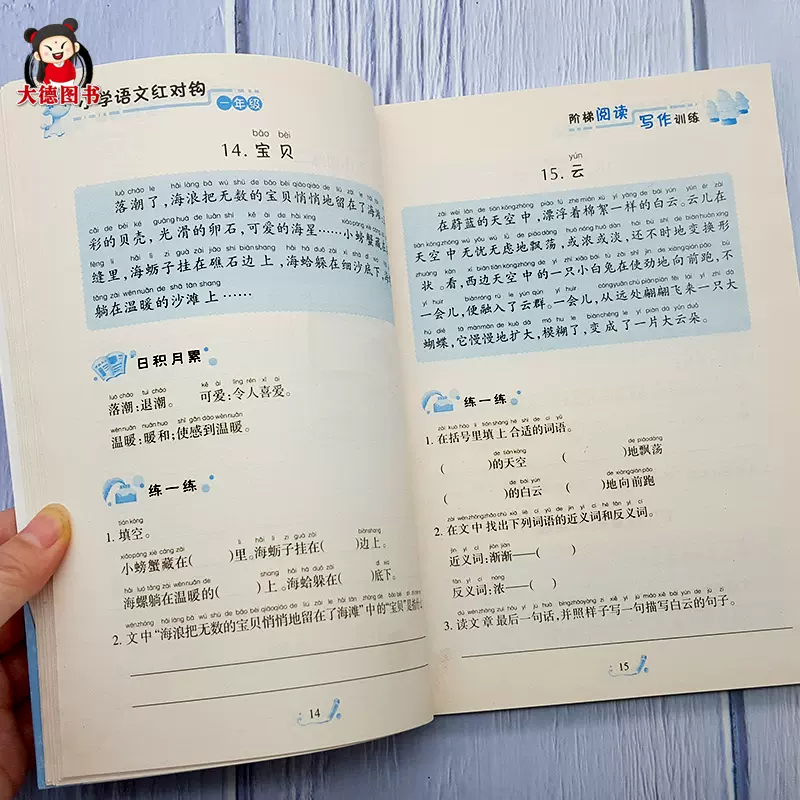 大德图书
小学语文红对钩
一年级
bǎo bèi
14. 宝 贝
luò cháo le hǎi làng bǎ wú shù de bǎo bèi qiāo qiāo de liú zài le hǎi tān
落潮了,海浪把无数的宝贝悄悄地留在了海滩
cǎi de bèi ké guāng huá de luǎn shí kě ài de hǎi xīng xiǎo páng xiè cáng
彩的贝壳,光滑的卵石,可爱的海星……小螃蟹藏
fèng lǐ hǎi lì zi guà zài jiāo shí biān shàng hǎi há duǒ zài xì shā dǐ xià
缝里,海蛎子挂在礁石边上,海蛤躲在细沙底下,
tǎng zài wēn nuǎn de shā tān shàng
躺在温暖的沙滩上……
日积月累
luò cháo tuì cháo kě ài lìng rén xǐ ài
落潮:退潮。 可爱:令人喜爱。
wēn nuǎn nuǎn huo shǐ gǎn dào wēn nuǎn
温暖:暖和;使感到温暖。
练一练
tián kòng
1. 填空。
xiǎo páng xiè cáng zài lǐ hǎi lì zi guà zài biān shang
小螃蟹藏在( )里。海蛎子挂在( )边上。
hǎi luó tǎng zài wēn nuǎn de shang hǎi há duǒ zài dǐ xia
海螺躺在温暖的( )上。海蛤躲在( )底下。
wén zhōng hǎi làng bǎ wú shù de bǎo bèi qiāo qiāo de liú zài le hǎi tān zhōng de bǎo bèi
2. 文中“海浪把无数的宝贝悄悄地留在了海滩”中的“宝贝”是指什么
14
阶梯阅读 写作训练
yún
15. 云
zài wèi lán de tiān kōng zhōng piāo fú zhe mián xù yí yàng de bái yún yún ér zài
在蔚蓝的天空中,漂浮着棉絮一样的白云。云儿在
tiān kōng zhōng wú yōu wú lǜ de piāo dàng huò nóng huò dàn hái bù shí de biàn huàn xíng
天空中无忧无虑地飘荡,或浓或淡,还不时地变换形
zhuàng kàn xī biān tiān kōng zhōng de yì zhī xiǎo bái tù zài shǐ jìn de xiàng qián pǎo bù
状。看,西边天空中的一只小白兔在使劲地向前跑,不
yí huìr biàn róng rù le yún qún yí huìr cóng yuǎn chù piān piān fēi lái yì zhī dà
一会儿,便融入了云群。一会儿,从远处翩翩飞来一只大
hú dié tā màn màn de kuò dà mó hu le biàn chéng le yí piàn dà yún duo
蝴蝶,它慢慢地扩大,模糊了,变成了一片大云朵。
练一练
zài kuò hào lǐ tián shàng hé shì de cí yǔ
1. 在括号里填上合适的词语。
de tiān kōng de piāo dàng
( )的天空 ( )地飘荡
de bái yún de xiàng qián pǎo
( )的白云 ( )地向前跑
zài wén zhōng zhǎo chū xià liè cí yǔ de jìn yì cí hé fǎn yì cí
2. 在文中找出下列词语的近义词和反义词。
jìn yì cí jiàn jiàn
近义词:渐渐——( )
fǎn yì cí nóng
反义词:浓——( )
dú wén zhāng zuì hòu yí jù huà bìng zhào yàng zi xiě yí jù miáo xiě bái yún de jù zi
3. 读文章最后一句话,并照样子写一句描写白云的句子。
15